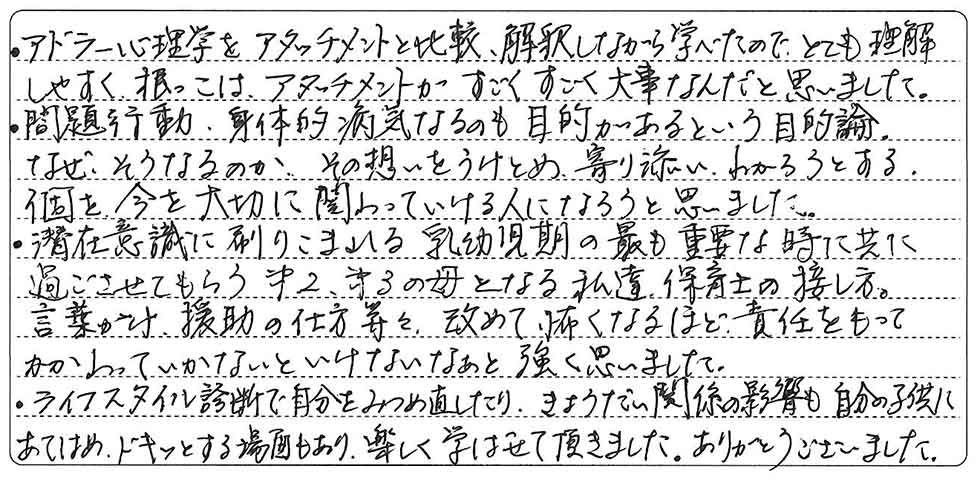 ・アドラー心理学を アタッチメントと比較、解釈しながら学べたので、とても理解
しやすく、根っこは、アタッチメントが すごくすごく大事なんだと思いました。
・問題行動、身体的病気なるのも目的があるという目的論。
なぜ、そうなるのか、その想いをうけとめ、寄り添い、わかろうとする、
個を、今を大切に関わっていける人になろうと思いました。
・潜在意識に刷りこまれる乳幼児期の最も重要な時に共に
過ごさせてもらう 第2、第3の母となる私達、保育士の接し方。
言葉がけ、援助の仕方等々、改めて、怖くなるほど、責任をもって
かかわっていかないといけないなぁと強く思いました。
・ライフスタイル診断で自分をみつめ直したり、きょうだい関係の影響も自分の子供に
あてはめ、ドキッとする場面もあり、楽しく学ばせて頂きました。ありがとうございました。